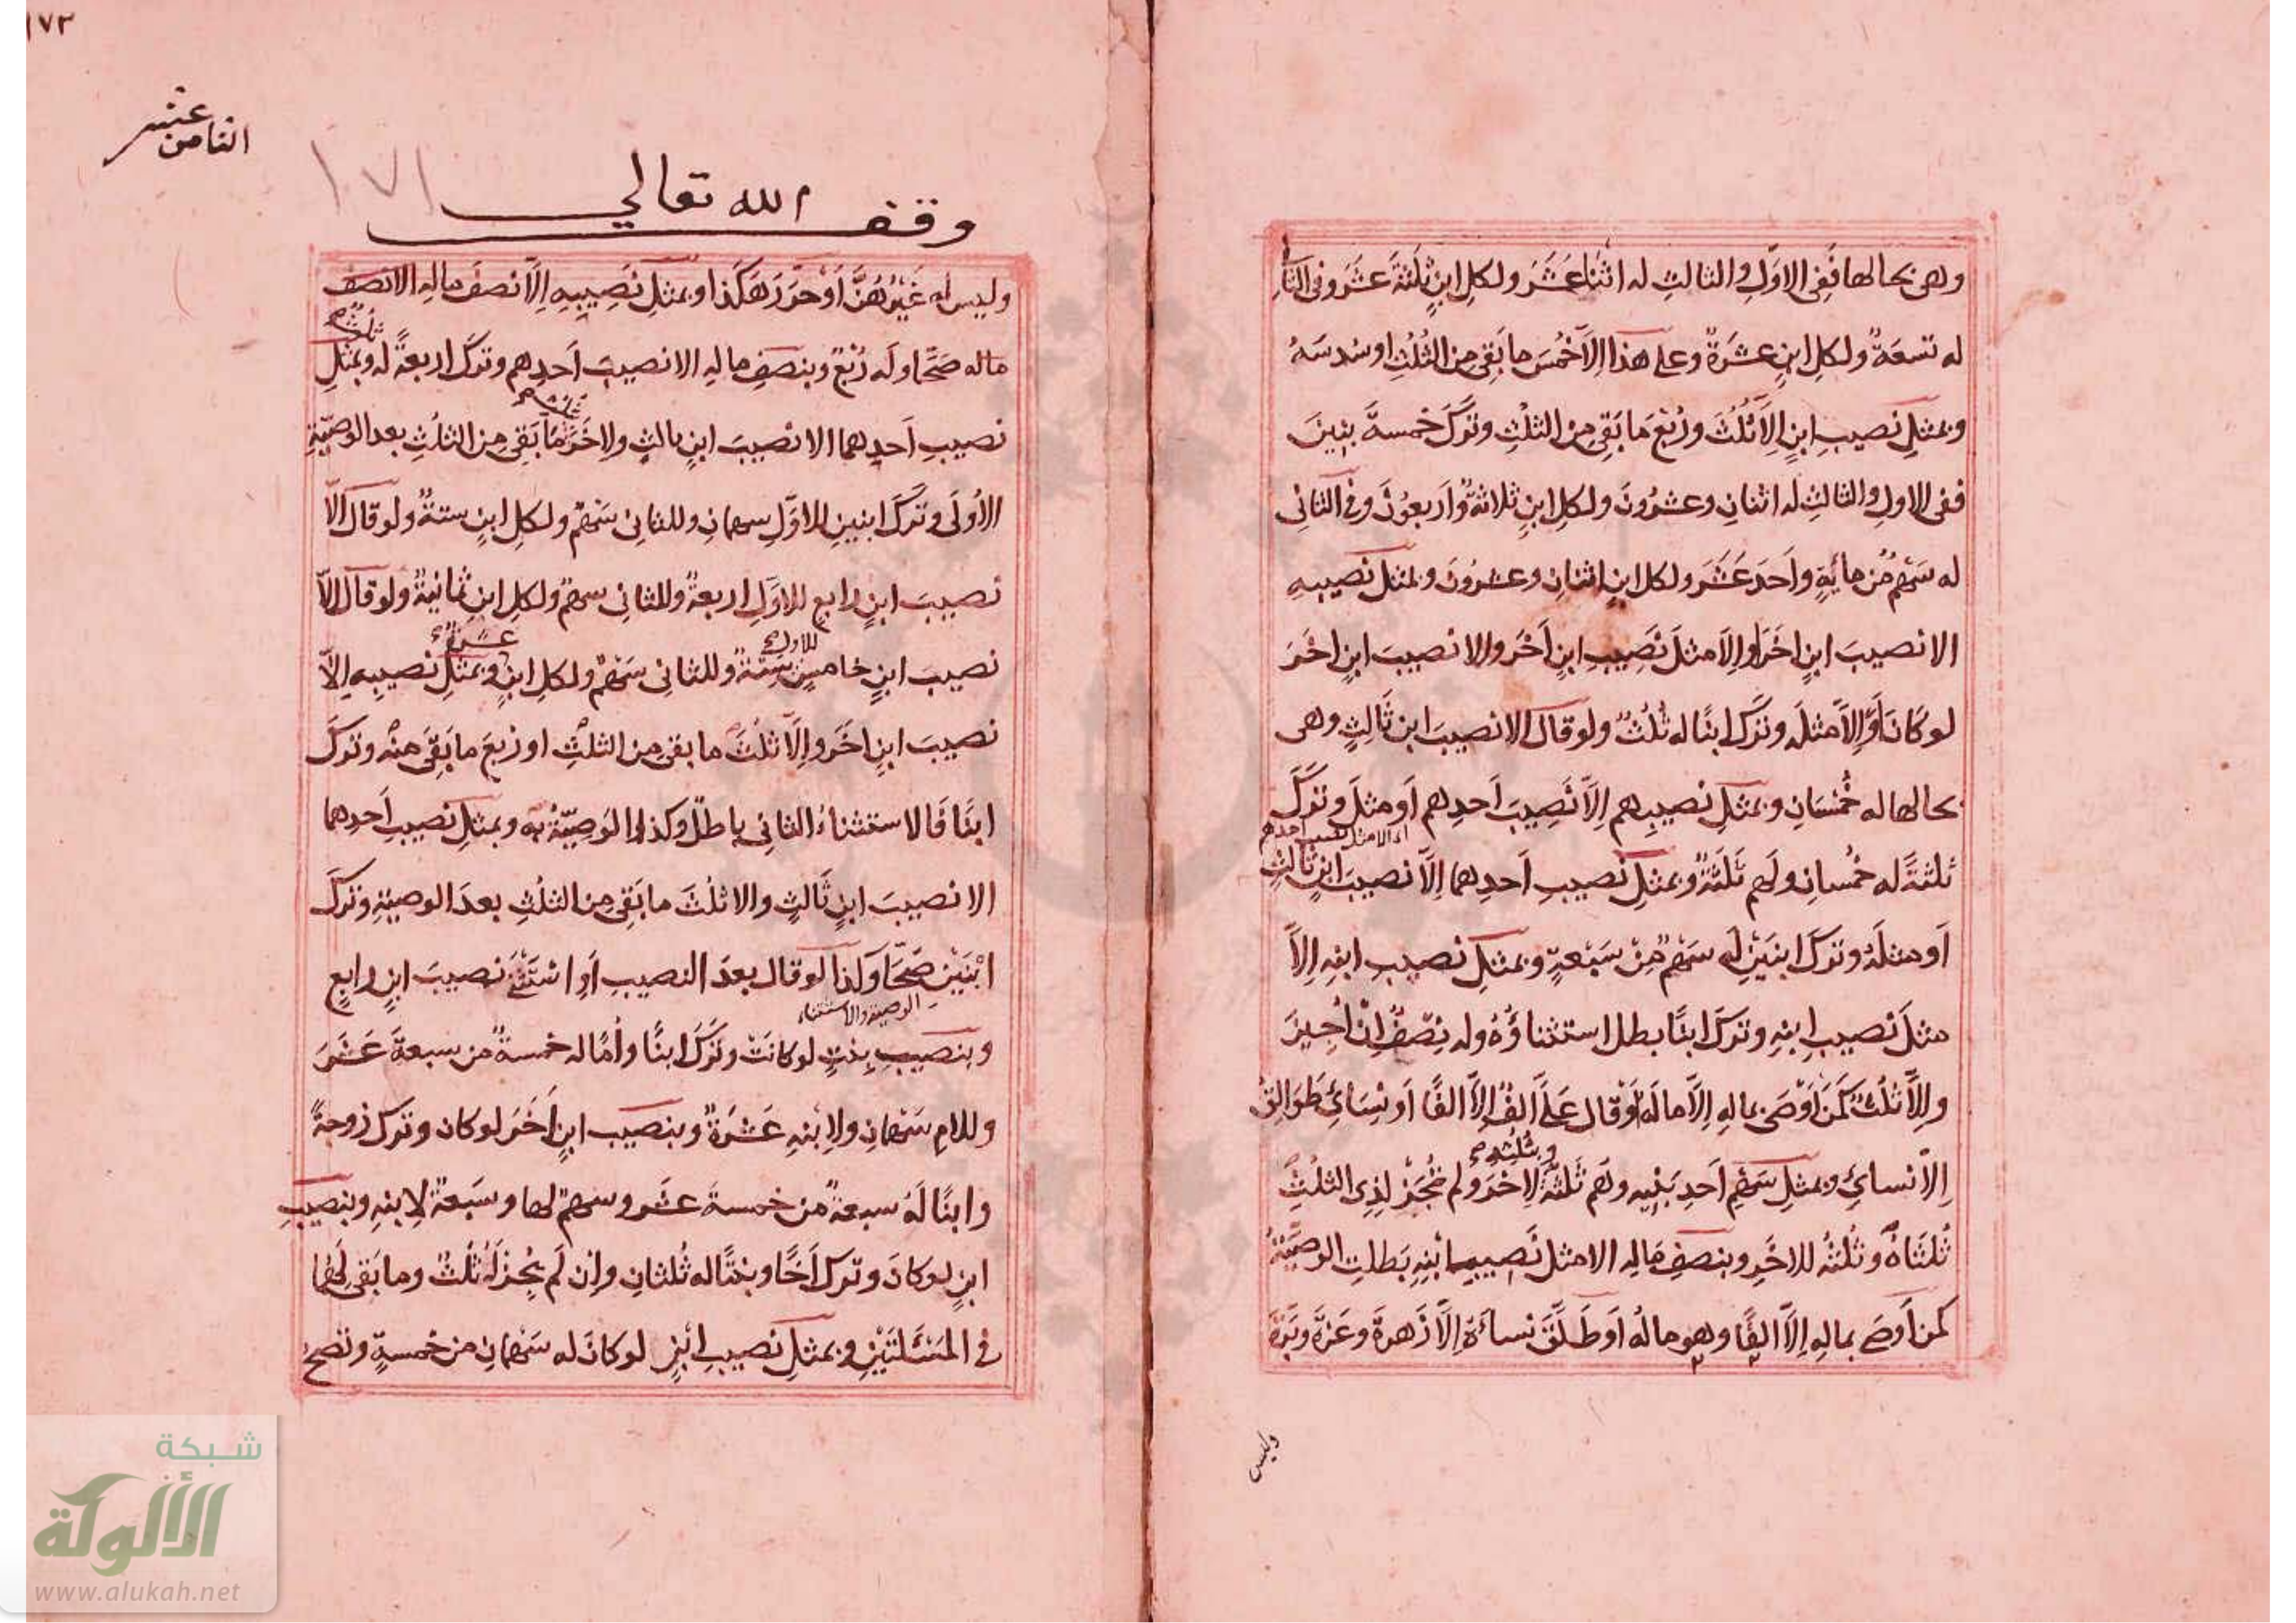 وهى بحالها ففى الاوّل والثالث له اثنا عَشَرَ ولكل ابنٍ ثلثةَ عَشَرَ وفى الثانى
له تسعةٌ ولكلِ ابنٍ عشرةٌ وعلى هذا اِلاّ خُمسَ ما بَقِىَ مِنَ الثُلُثِ او سُدسَهُ
وبمثلِ نصيبِ ابنٍ اِلاّ ثُلُثَ ورُبْعَ مَا بَقِىَ مِنَ الثلثِ وتَرَكَ خمسةَ بنينَ
ففى الاولِ والثالثِ لَه اثنانِ وعشرُونَ ولكلِ ابنٍ ثلاثةٌ واَربعُونَ وفى الثانِى
له سَهْمٌ مِن مائةٍ واَحَدَ عَشَرَ ولكل ابنٍ اثنانِ وعشرُونَ وبمثلِ نصيبِهِ
الا نصيبَ ابنٍ اخَرَ او اِلاّ مثلَ نَصِيبِ ابنٍ اَخَرَ والا نصيبَ ابنٍ اخَرَ
لو كَانَ اَو اِلاَّ مثلَه وتَرَكَ ابنًا له ثُلُثٌ ولو قال الا نصيبَ ابن ثَالثٍ وهى
بحالها له خُمْسَانِ وبمثلِ نصيبِهم اِلاّ نَصِيبَ اَحدِهم اَو مثلَه وتَرَكَ
اى الا مثل نصيب احدهم
ثلثةً له خُمْسانِ ولَهم ثَلَثَةٌ وبمثلِ نصيبِ اَحدِهما اِلاّ نصيبَ ابنٍ ثالثٍ
اَو مثلَهُ وتركَ ابنَينِ لَه سَهْمٌ مِنْ سَبْعةٍ وبمثلِ نصيبِ ابنِهِ اِلاّ
مثلَ نصيبِ ابنِهِ وتركَ ابنًا بطل استثناؤُهُ وله نِصْفٌ اِنْ اُجِيزَ
واِلاّ ثُلُثٌ كَمَنْ اَوْصَى بمالِهِ اِلاَّ مالَه اَوْ قال عَلَىَّ اَلفٌ اِلاّ الفًا اَو نِسَائِى طَوَالِقُ
وبثلثه
اِلاّ نسائِى وبمثلِ سَهْمِ اَحدِ بَنِيهِ ولَهم ثَلَثَةٌ لاِخَرَ ولم تُجَزْ لِذِى الثلُثِ
ثُلثَاهُ وثُلثُهُ للاخَرِ وبنصفِ مَالِهِ الا مثل نَصِيبِ ابْنِهِ بَطلتِ الوصيّةُ
كمن اَوصَى بمالِهِ اِلاّ الفًا وهو مالُهُ اَو طَلَّقَ نساءَهُ اِلاَّ زَهرةَ وعَزَّةَ وبَرَّةَ
وليس
١٧٢
الثامن عشر
١٧١
وقف لله تعالى
وليس له غَيْرُهُنَّ اَوْ حَرَّرَ هَكَذا وبمثلِ نَصِيبِهِ اِلاَّ نصفَ مالِهِ الا نصف
ثلثه
ماله صَحَّا وله رُبْعٌ وبنصفِ مالِهِ الا نصيبَ اَحدِهم وتركَ اربعةً له وبمثلِ
نصيبِ اَحدِهما الا نصيبَ ابنٍ ثالثٍ ولاخَرَ مَا بَقِىَ مِنَ الثلُثِ بعد الوصيّةِ
الاُولَى وتَرَكَ ابنينِ للاوّلِ سهمانِ وللثانِى سَهْمٌ ولكلِ ابنٍ ستةٌ ولو قال اِلاّ
نصيبَ ابنٍ رابعٍ للاوّلِ اربعةٌ وللثانى سهمٌ ولكلِ ابنٍ ثمانيةٌ ولو قال اِلاّ
للاول عشرة
نصيبَ ابنٍ خامسٍ ستّةٌ وللثانِى سَهْمٌ ولكلِ ابنٍ وبمثلِ نصيبِهِ اِلاّ
نصيبَ ابنٍ اخَرَ واِلاّ ثلُثَ ما بقى مِن الثلُثِ او رُبعَ ما بَقِىَ منهُ وتركَ
ابنًا فَالاستثناءُ الثانِى باطلٌ وكذا الوصِيّةُ به وبمثلِ نصيبِ اَحدِهما
الا نصيبَ ابنٍ ثَالثٍ والا ثلُثَ ما بَقِىَ مِنَ الثلُثِ بعدَ الوصيّةِ وتركَ
ابْنَيْنِ صَحَّا وَكذا لو قال بعدَ النصيبِ اَو استَثْنَى نصيبَ ابنٍ رابعٍ
الوصية والاستثناء
وبنصيبِ بنتٍ لو كانَتْ وتَرَكَ ابنًا واُمًا له خمسةٌ من سبعةَ عَشَرَ
وللامِ سَهْمانِ ولابنِهِ عَشَرَةٌ وبنصيبِ ابنٍ اَخَرَ لو كان وترك زوجةً
وابنًا لَهُ سبعةٌ من خمسةَ عشر وسهمٌ لها وسَبعةٌ لاِبنِهِ وبنصيبِ
ابنٍ لو كانَ وترك اَخًا وبنتًا له ثُلثانِ واِن لَم يُجِزْ لَهُ ثُلُثٌ وما بَقى لَهُما
فى المَسْئَلَتَيْنِ وبمثلِ نصيبِ ابْنٍ لو كانَ له سَهْمانِ من خمسةٍ وتصح
شبكة
الألوكة
www.alukah.net